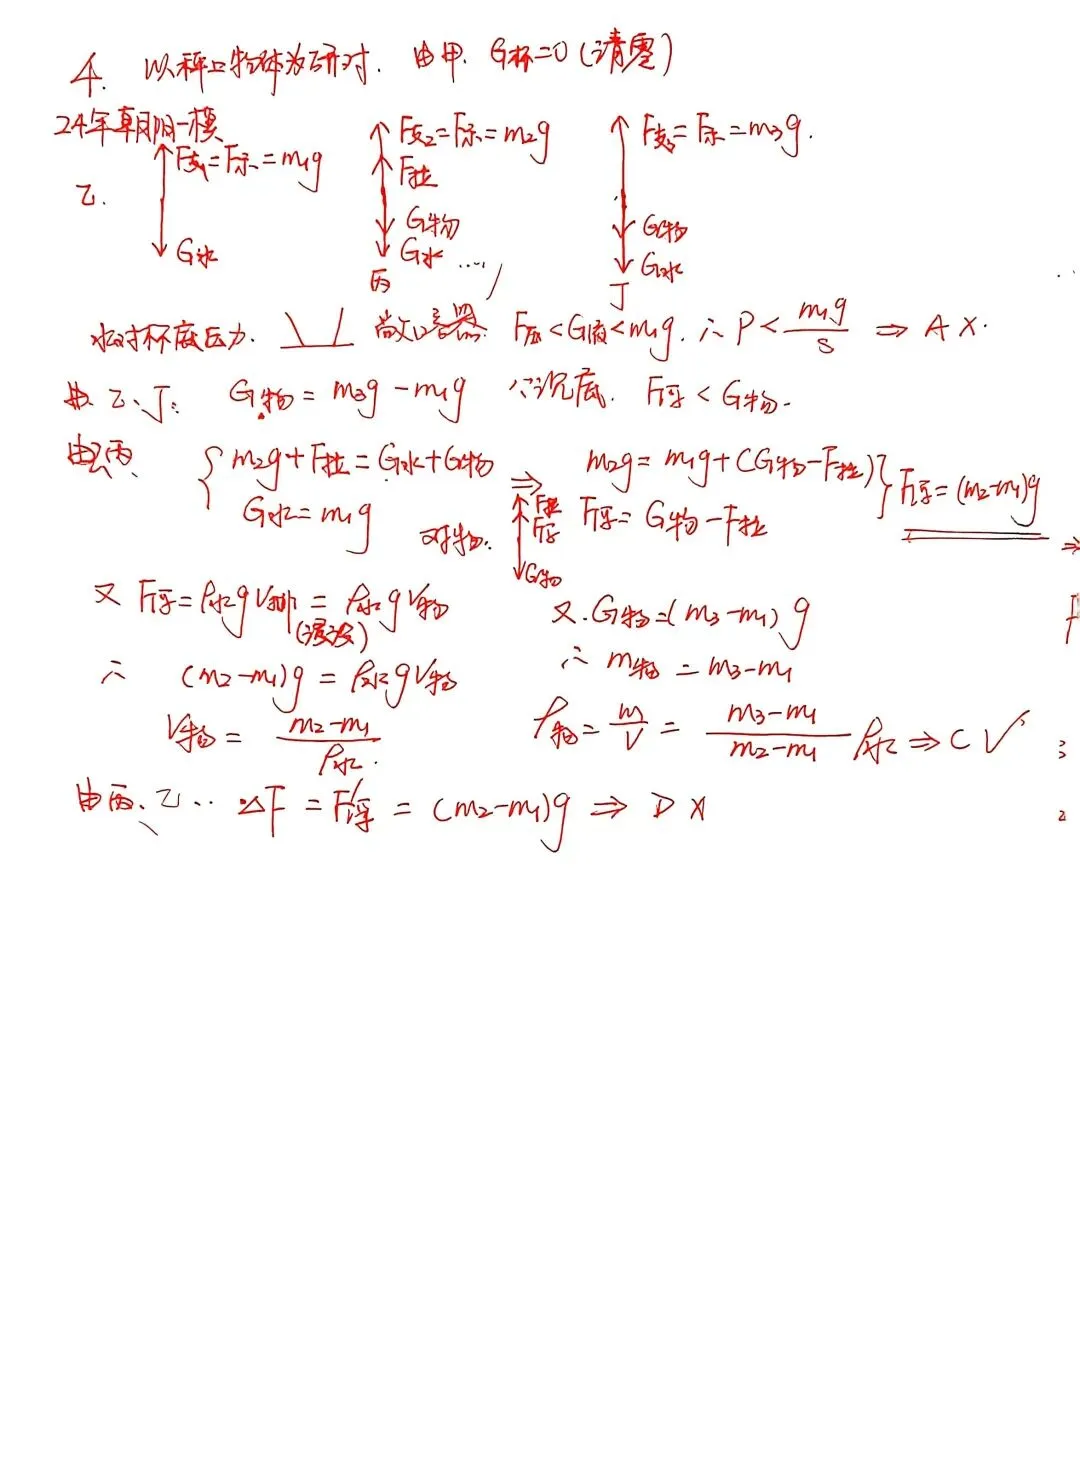 4. 以秤上物体为研对. 由甲. G杯=0(清零)
24年朝阳一模
乙. F支1=F示1=m₁g F支2=F示2=m₂g F支3=F示=m₃g.
F拉
G水 G物 G水 G物 G水
丙 丁
水对杯底压力. 敞口容器 F压<G液<m₁g. ∴P<m₁g/S ⇒ A ×.
由乙、丁: G物=m₃g-m₁g ∵沉底. F浮<G物.
由乙丙、 { m₂g+F拉=G水+G物 ⇒ m₂g=m₁g+(G物-F拉) } F浮=(m₂-m₁)g
G水=m₁g 对物. F拉 F浮 G物 F浮=G物-F拉
⇒
又 F浮=ρ水gV排=ρ水gV物 又.G物=(m₃-m₁)g
(浸没)
∴ (m₂-m₁)g=ρ水gV物 ∴ m物=m₃-m₁
V物=m₂-m₁/ρ水. ρ物=m/V=m₃-m₁/m₂-m₁ ρ水⇒C√
由丙、乙.. △F=F浮=(m₂-m₁)g⇒D×